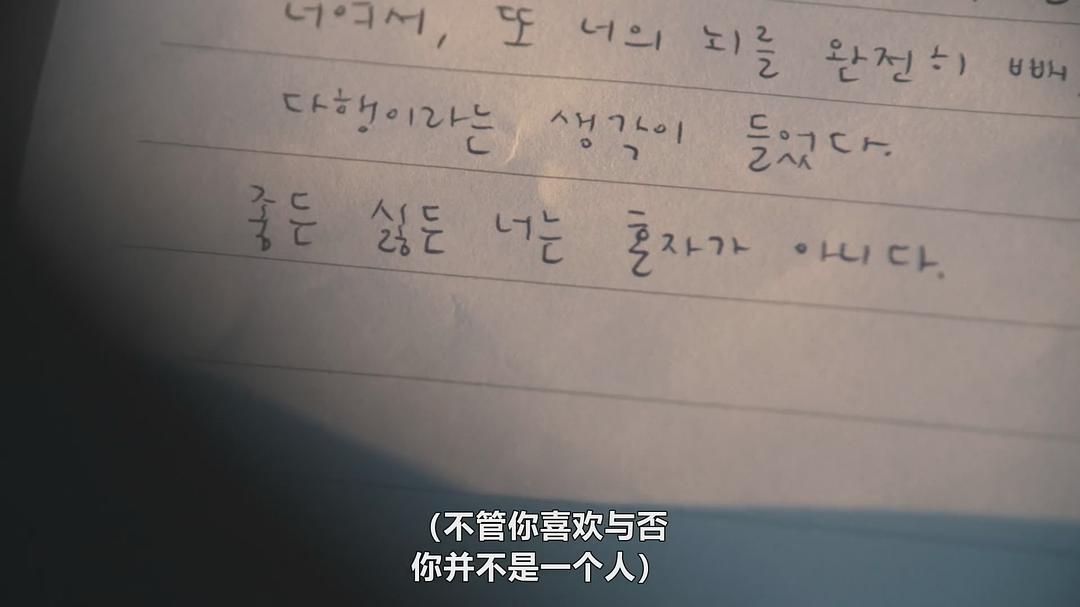 너여서, 또 너의 뇌를 완전히
다행이라는 생각이 들었다.
좋든 싫든 너는 혼자가 아니다.
（不管你喜欢与否
你并不是一个人）